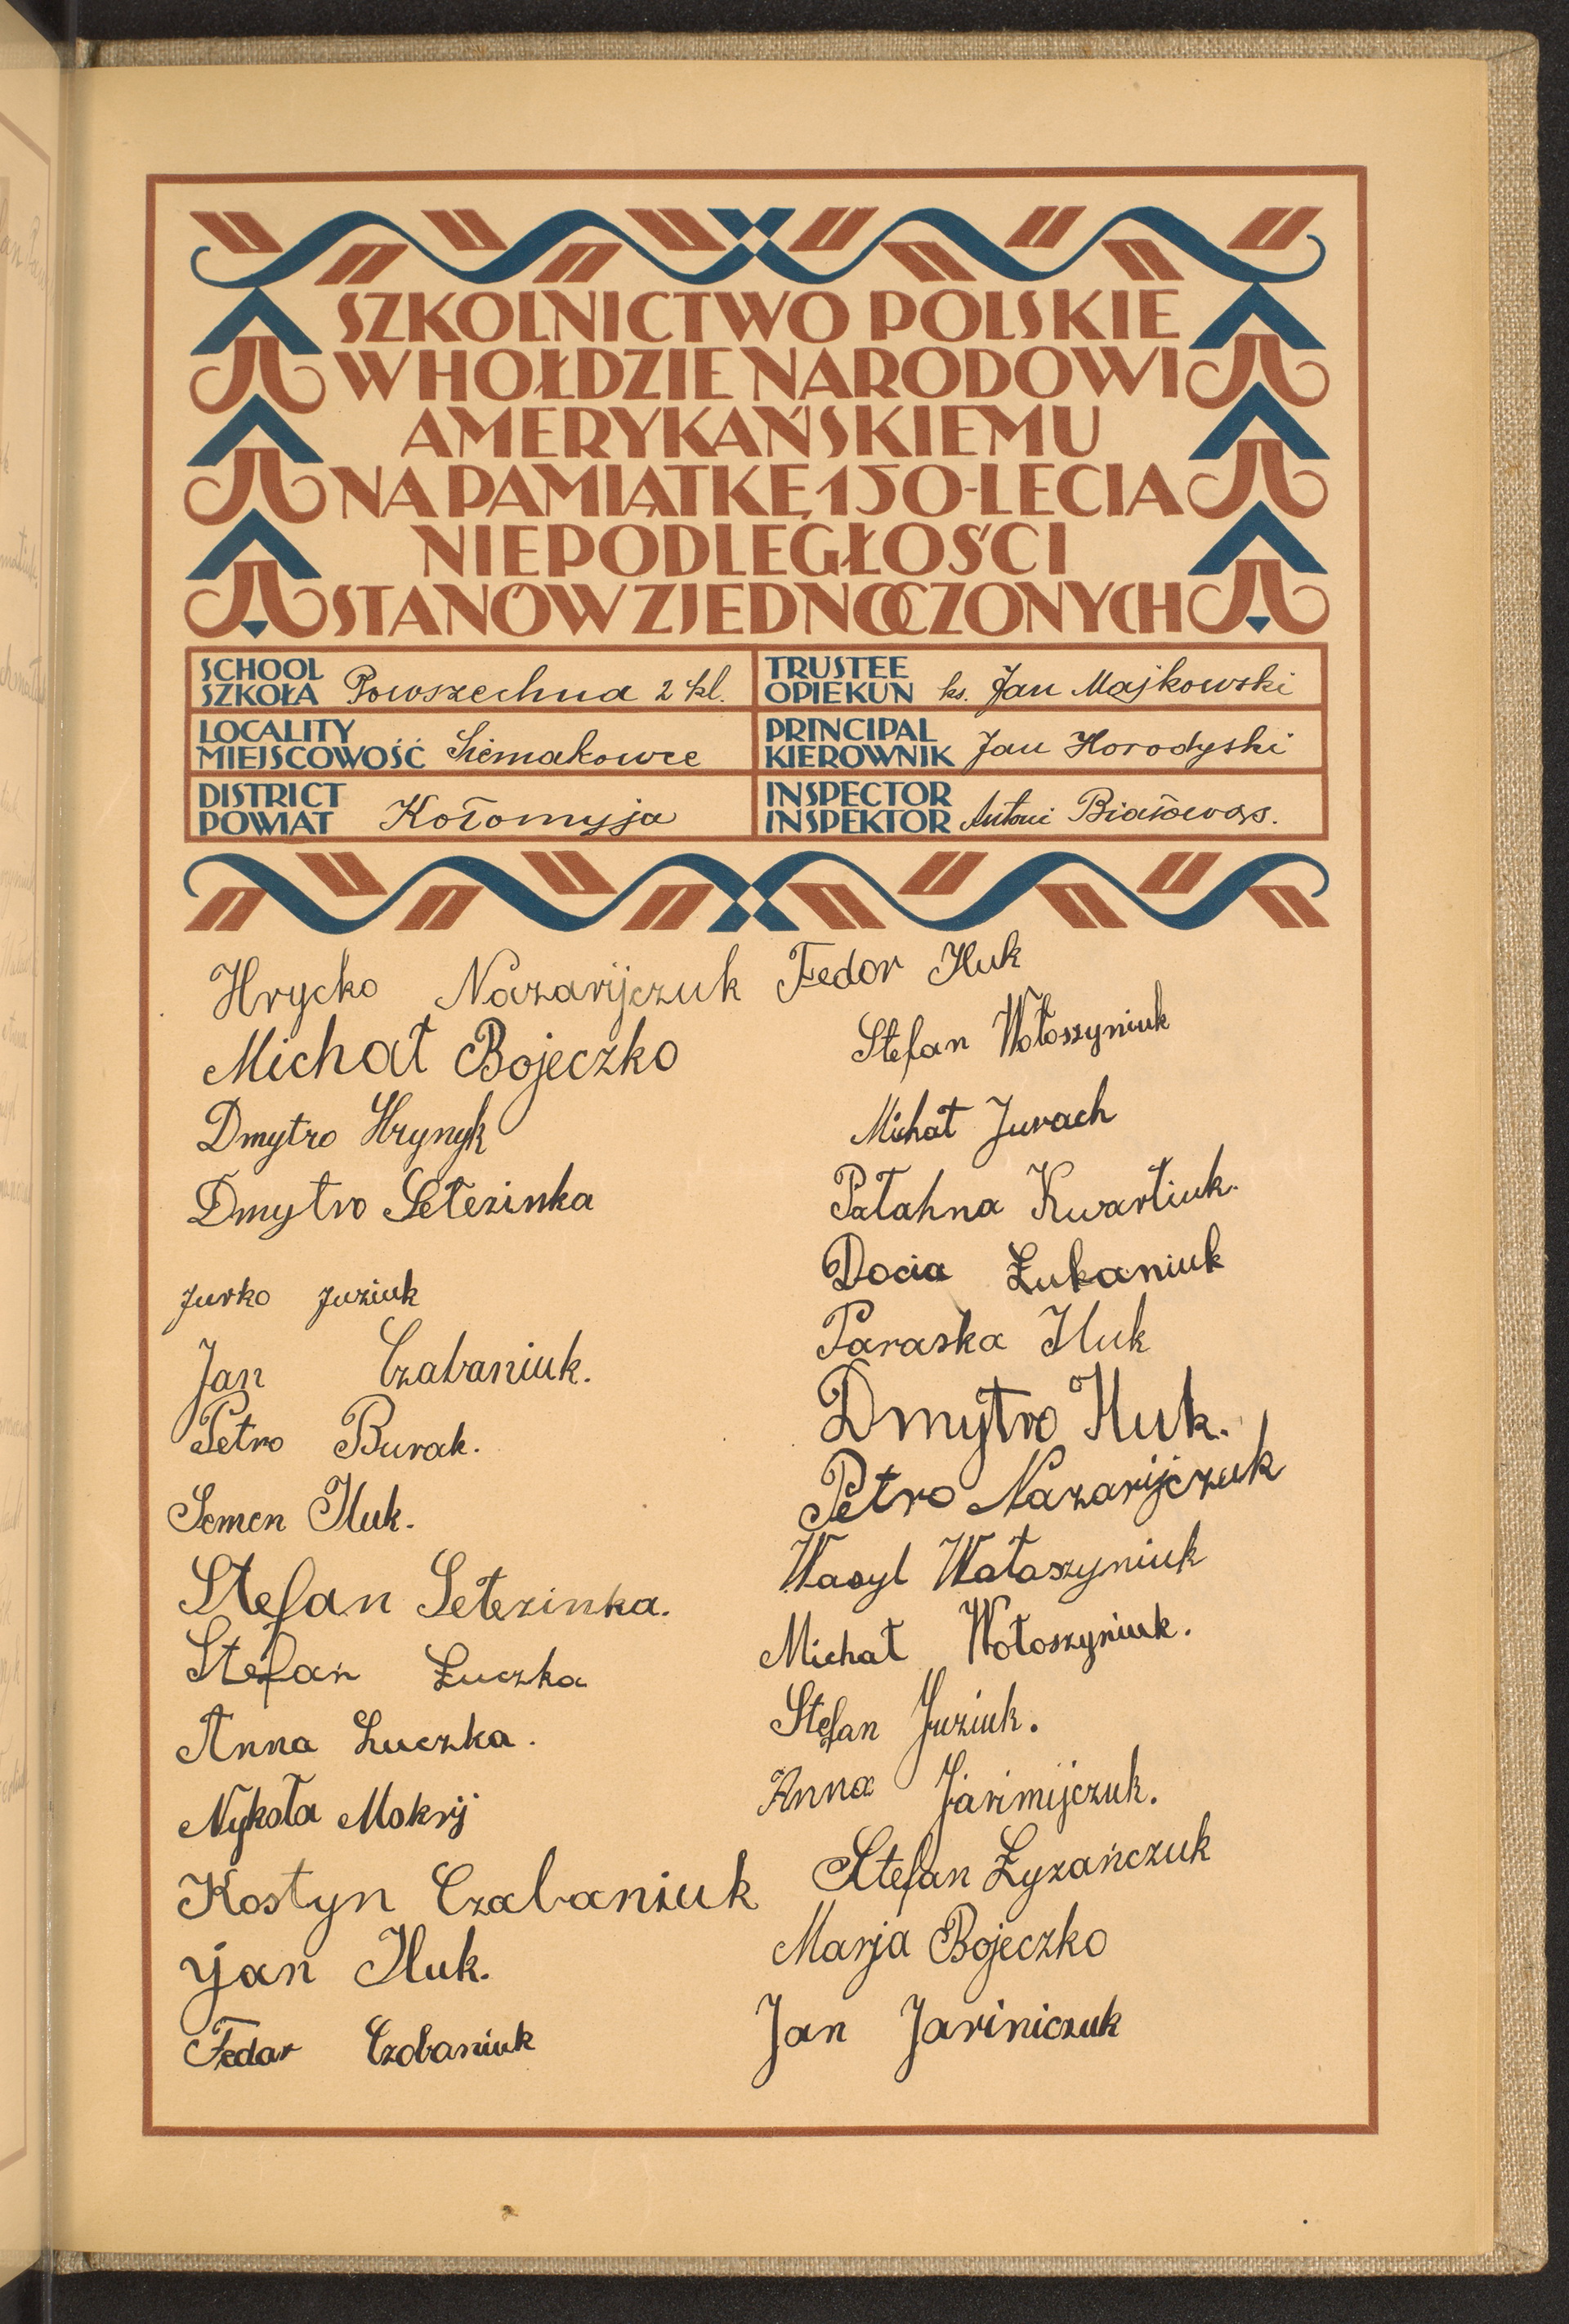 SZKOLNICTWO POLSKIE
W HOŁDZIE NARODOWI
AMERYKAŃSKIEMU
NA PAMIĄTKĘ 150-LECIA
NIEPODLEGŁOŚCI
STANÓW ZJEDNOCZONYCH
SCHOOL
SZKOŁA Powszechna 2 kl.
LOCALITY
MIEJSCOWOŚĆ Siemakowce
DISTRICT
POWIAT Kołomyja
TRUSTEE
OPIEKUN ks. Jan Majkowski
PRINCIPAL
KIEROWNIK Jan Horodyski
INSPECTOR
INSPEKTOR Antoni Białowąs.
Hrycko Nazarijczuk
Michał Bojeczko
Dmytro Hrynyk
Dmytro Setezinka
Jurko Juziuk
Jan Czabaniuk.
Petro Burak.
Semen Huk.
Stefan Setezinka.
Stefan Łuczka
Anna Łuczka.
Nykoła Mokrij
Kostyn Czabaniuk
Jan Huk.
Fedor Czobaniuk
Fedor Huk
Stefan Wołoszyniuk
Michał Jurach
Pałahna Kwartiuk.
Docia Łukaniuk
Paraska Huk
Dmytro Huk.
Petro Nazarijczuk
Wasyl Wałaszyniuk
Michał Wołoszyniuk.
Stefan Juziuk.
Anna Jarimijczuk.
Stefan Łyzańczuk
Marja Bojeczko
Jan Jariniczuk